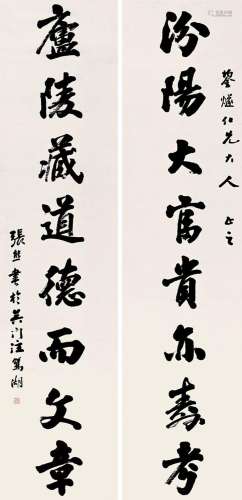 藜燧仁兄大人 正之
汾陽大富貴亦壽考
廬陵藏道德而文章
張熊書於吳門注鴛湖